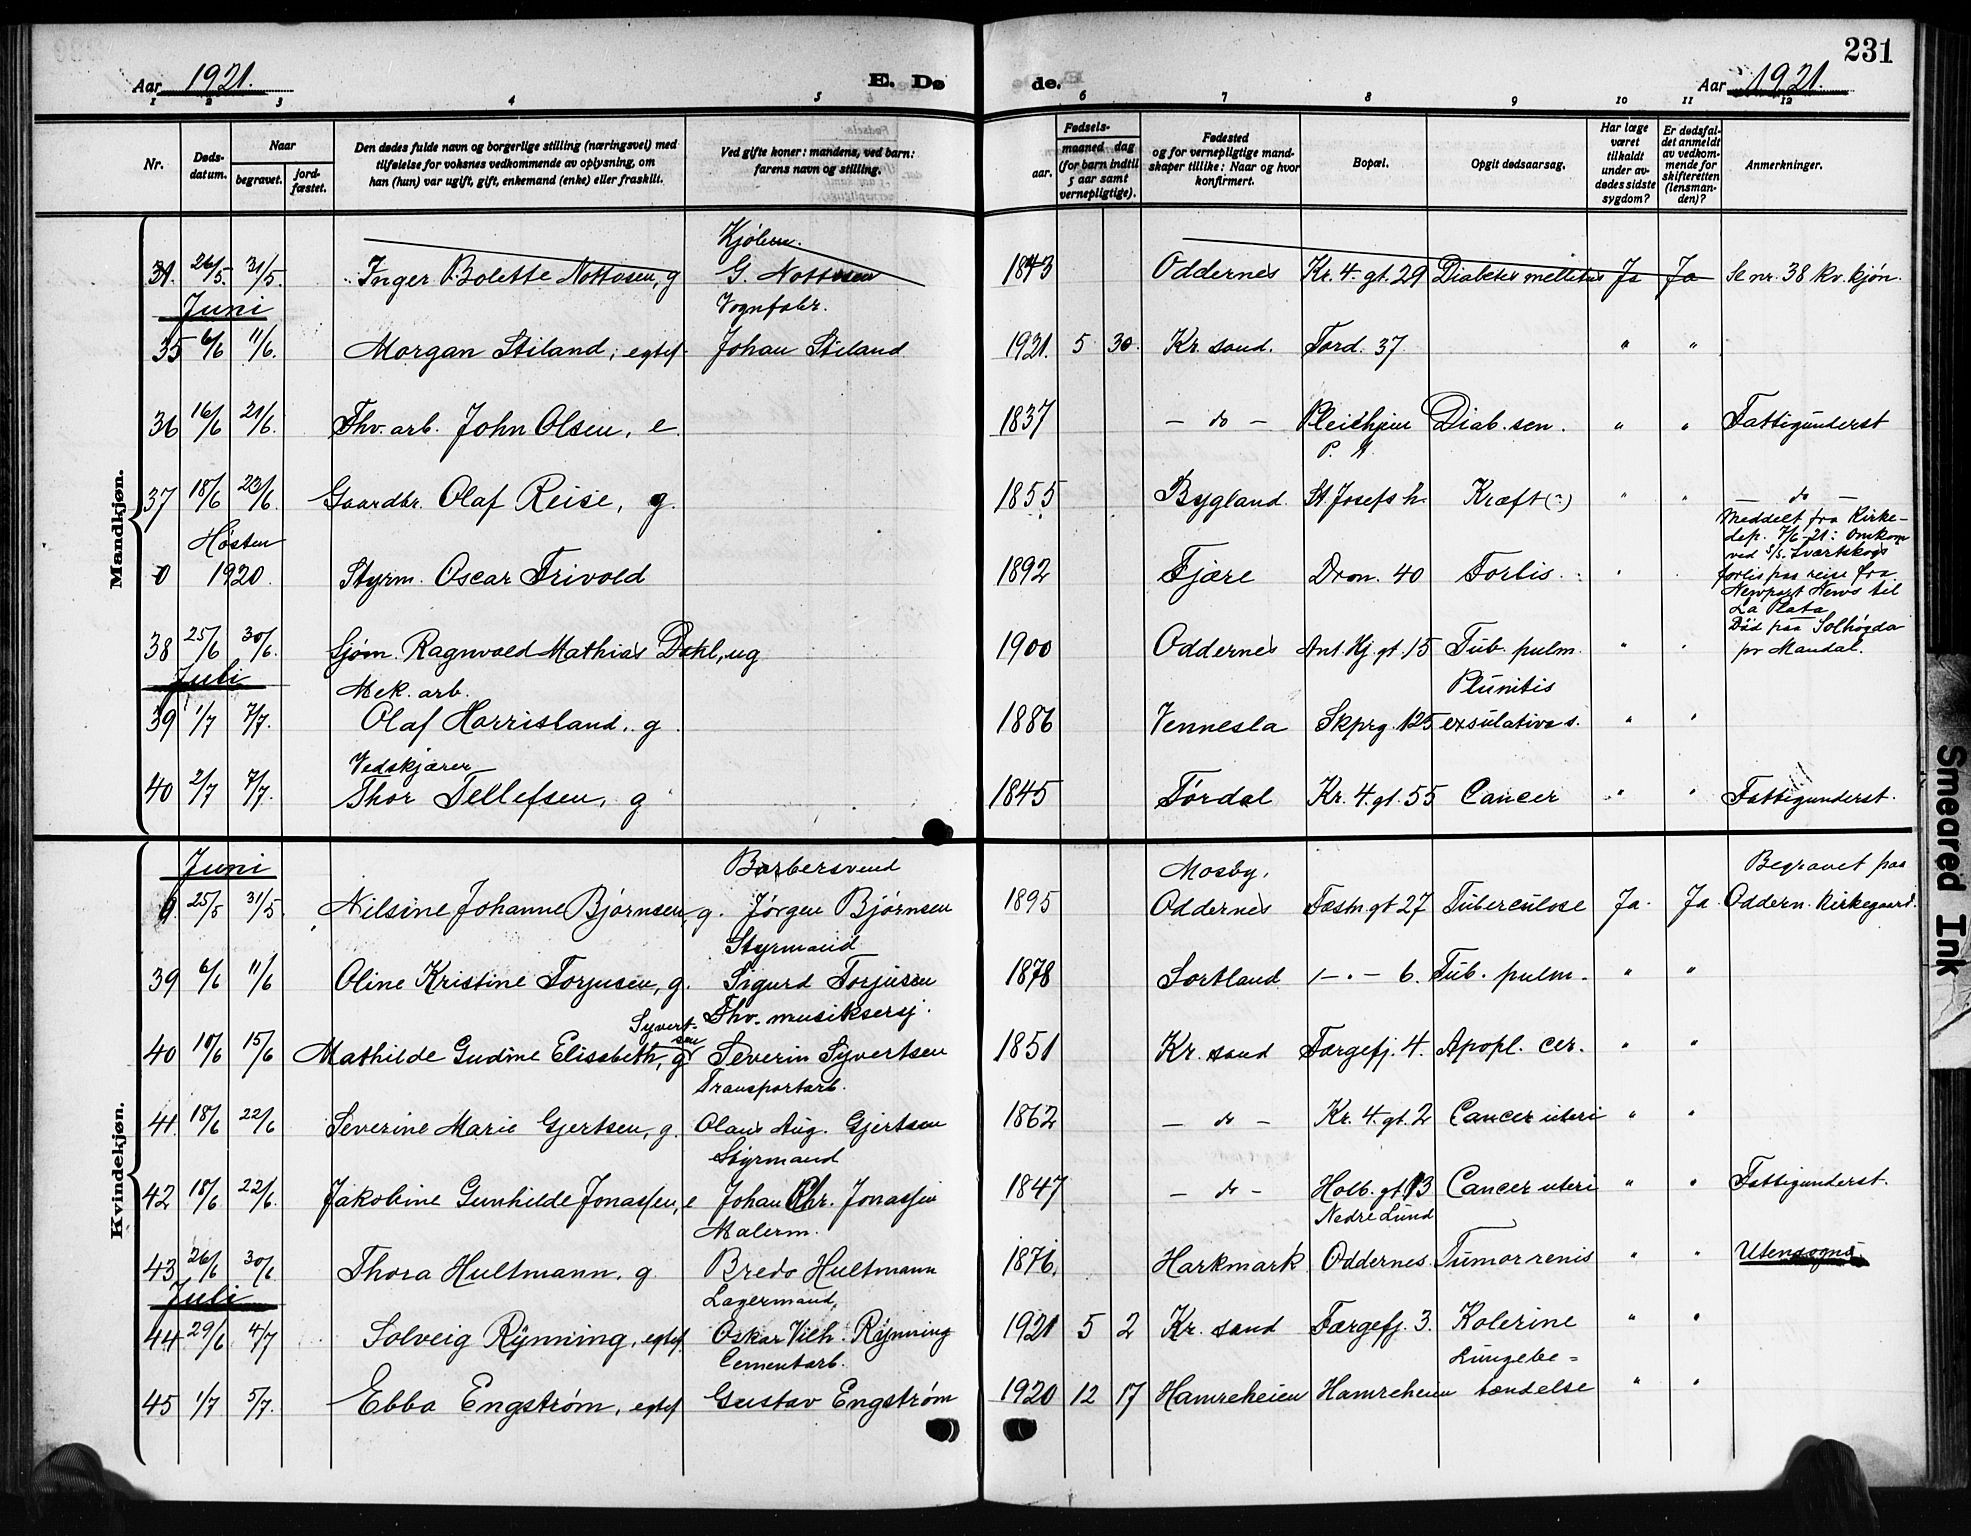 231
Aar 1921. E. Dø de. Aar 1921.
1 2 3 4 5 6 7 8 9 10 11 12
Nr. Døds-datum. Naar begravet. jord-fæstet. Den dødes fulde navn og borgerlige stilling (næringsvei) med tilføielse for voksnes vedkommende av oplysning, om han (hun) var ugift, gift, enkemand (enke) eller fraskilt. Ved gifte koner: mandens, ved barn: farens navn og stilling. Fødsels- aar. maaned dag (for barn indtil 5 aar samt vernepligtige). Fødested og for vernepligtige mand-skaper tillike: Naar og hvor konfirmert. Bopæl. Opgit dødsaarsag. Har læge været tilkaldt under av-dødes sidste sygdom? Er dødsfal-det anmeldt av vedkom-mende for skifteretten (lensman-den)? Anmerkninger.
Mandkjøn.
31. 26/5. 31/5. Inger Bolette Nottosen, g G. Nottosen Vognfabr. 1843 Oddernes Kr. 4. gt. 29 Diabetes mellitus Ja Ja Se nr. 38 kv. kjøn.
Juni
35 6/6 11/6. Morgan Stiland, egtef. Johan Stiland 1921. 5 30. Kr. sand. Tord. 37 " "
36 16/6 21/6. Fhv. arb. John Olsen, e. 1837 - do - Pleiehjem Diab. sen. " " Fattigunderst
37 18/6 23/6 Gaardbr. Olaf Reise, g. 1855 Bygland St. Josefs h. Kræft (?) " " - do -
0 Høsten 1920. Styrm. Oscar Trivold 1892 Fjære Dron. 40 Forlis. Meddelt fra Kirke-
dep. 7/6-21: Omkom
ved S/S. Sværtskogs
forlis paa reise fra
Newport News til
La Plata
38 25/6 30/6. Sjøm. Ragnvald Mathias Dahl, ug 1900 Oddernes Ant. Hj. gt. 15 Tub. pulm. " " Død paa Solhøgda
pr Mandal.
Juli
39 1/7 7/7. Mek. arb. Olaf Horrisland, g. 1886 Vennesla Skprg. 125 exsulativa s. " "
40 2/7 7/7. Vedskjærer Thor Tellefsen, g 1845 Tørdal Kr. 4. gt. 55 Cancer " " Fattigunderst.
Kvindekjøn.
Juni
0. 25/5 31/5. Nilsine Johanne Bjørnsen, g. Barbersvend Jørgen Bjørnsen 1895 Mosby, Oddernes Fæstn gt 27 Tuberculose Ja. Ja. Begravet paa Oddern. Kirkegaard.
39 6/6 11/6 Oline Kristine Torjusen, g. Styrmand Sigurd Torjusen 1878 Sortland -"- 6. Tub. pulm. " "
40 10/6 15/6 Mathilde Gudine Elisabeth Syvertsen, g Fhv. musiksersj. Severin Syvertsen 1851 Kr. sand Færgefj. 4. Apopl. cer. " "
41. 18/6 22/6 Severine Marie Gjertsen, g. Transportarb. Olaus Aug. Gjertsen 1862 - do - Kr. 4. gt. 2 Cancer uteri " "
42 18/6 22/6. Jakobine Gunhilde Jonassen, e Styrmand Johan Chr. Jonassen 1847 - do - Holb. gt. 13 Cancer uteri " " Fattigunderst.
43 26/6 30/6 Thora Hultmann, g Malerm. Bredo Hultmann 1876. Harkmark Nedre Lund Oddernes Tumor renis " " Utensogns
Juli
44 29/6 4/7 Solveig Rynning, egtef. Lagermand, Oskar Vilh. Rynning 1921 5 2 Kr. sand Færgefj. 3. Kolerine " "
45 1/7 5/7. Ebba Engstrøm, egtef Cementarb. Gustav Engstrøm 1920 12 17 Hamreheien Hamreheien Lungebe=tændelse " "
Smeared Ink